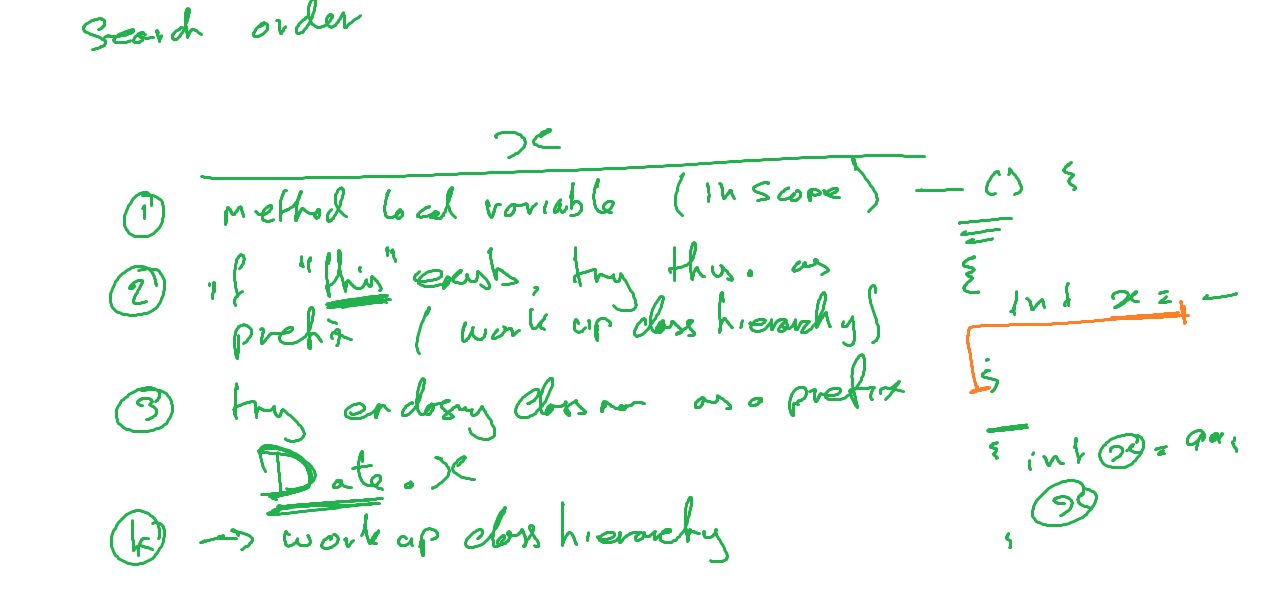 Search order
x
① method local variable (in scope) — () {
② if "this" exists, try this. as
prefix (work up class hierarchy)
{
int x = —
}
③ try enclosing class as a prefix
Date.x
{ int x =
x
}
→ work up class hierarchy